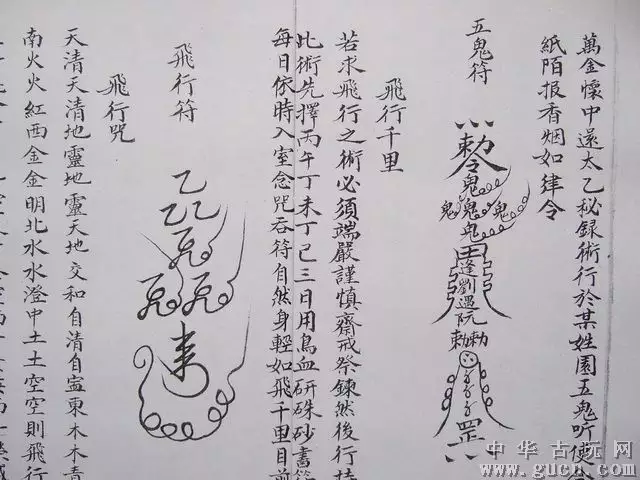 萬金懷中還太乙秘録術行於某姓園五鬼听使令
紙陌报香烟如律令
五鬼符
勅令
鬼
鬼鬼鬼鬼
鬼
逢劉遇阮
勅勅
罡
飛行千里
若求飛行之術必須端嚴謹慎齋戒祭鍊然後行持
此術先擇丙午丁未丁已三日用鳥血研硃砂書
每日依時入室念咒吞符自然身輕如飛千里目前
飛行符
飛行咒
天清天清地靈地靈天地交和自清自寍東木木青
南火火紅西金金明北水水澄中土土空空則飛行
中华古玩网
www.gucn.com